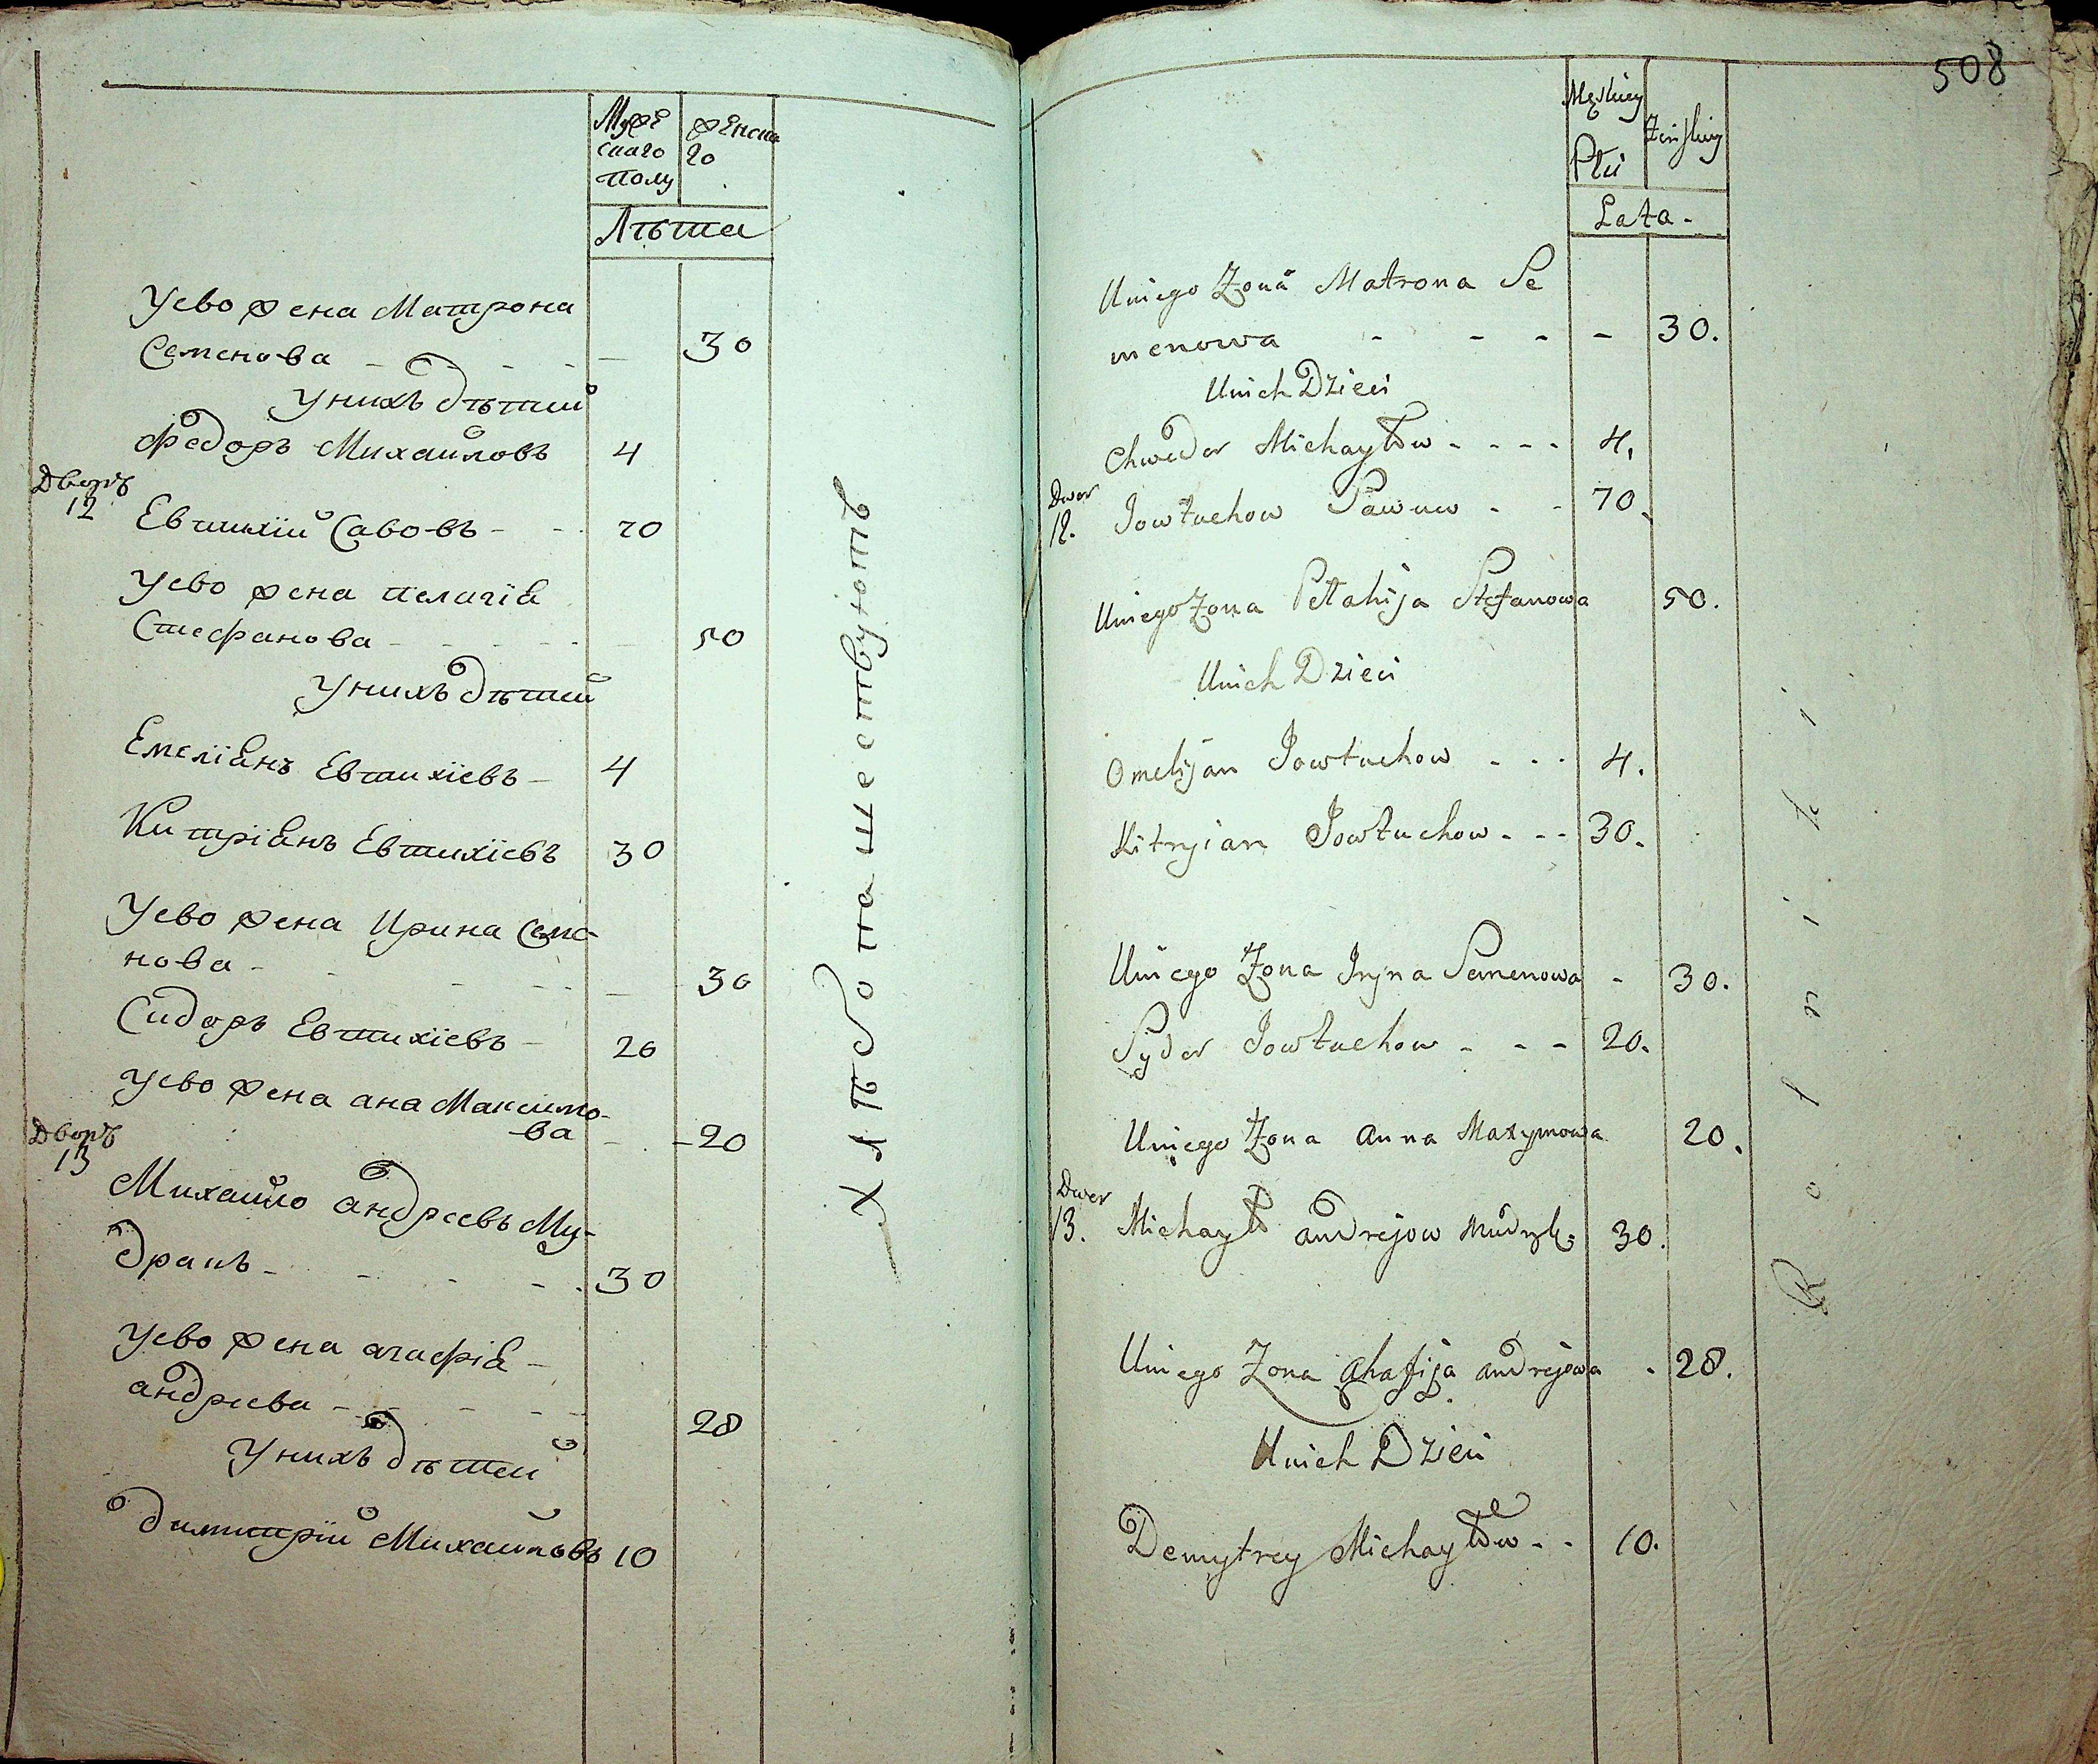 Мужескаго полу
женскаго
Лѣта
У ево жена Матрона
Семенова - - - - 30
У нихъ дѣтей
Федоръ Михайловъ 4
Дворъ 12
Евтихїй Савовъ - - 70
У ево жена Пелагїя
Стефанова - - - - 50
У нихъ дѣтей
Емелїянъ Евтихїевъ - 4
Китрїянъ Евтихїевъ 30
У ево жена Ирина Семе-
нова - - - - 30
Сидоръ Евтихїевъ - 20
У ево жена ана Максимо-
ва - - 20
Дворъ 13
Михайло андреевъ Му-
дракъ - - - - 30
У ево жена агафїя -
андреева - - - - 28
У нихъ дѣтей
димитрїй Михайловъ 10
Хлѣбопашествуютъ
508
Męskiey Płci
Żeńskiey
Lata -
Uniego Zona Matrona Se
menowa - - - - 30.
Unich Dzieci
Chwedor Michayłow - - - - 4.
Dwor 12.
Jowtuchow Sawuw - - 70.
Uniego Zona Pełahija Stefanowa 50.
Unich Dzieci
Omelijan Jowtuchow - - - 4.
Kitryian Jowtuchow - - - 30.
Uniego Zona Iryna Semenowa - 30.
Sydor Jowtuchow - - - 20.
Uniego Zona Anna Maxymowa 20.
Dwor 13.
Michayło andrejow Mudryk 30.
Uniego Zona Ahafija andrejowa - 28.
Unich Dzieci
Demytrey Michayłow - - 10.
Rolniki